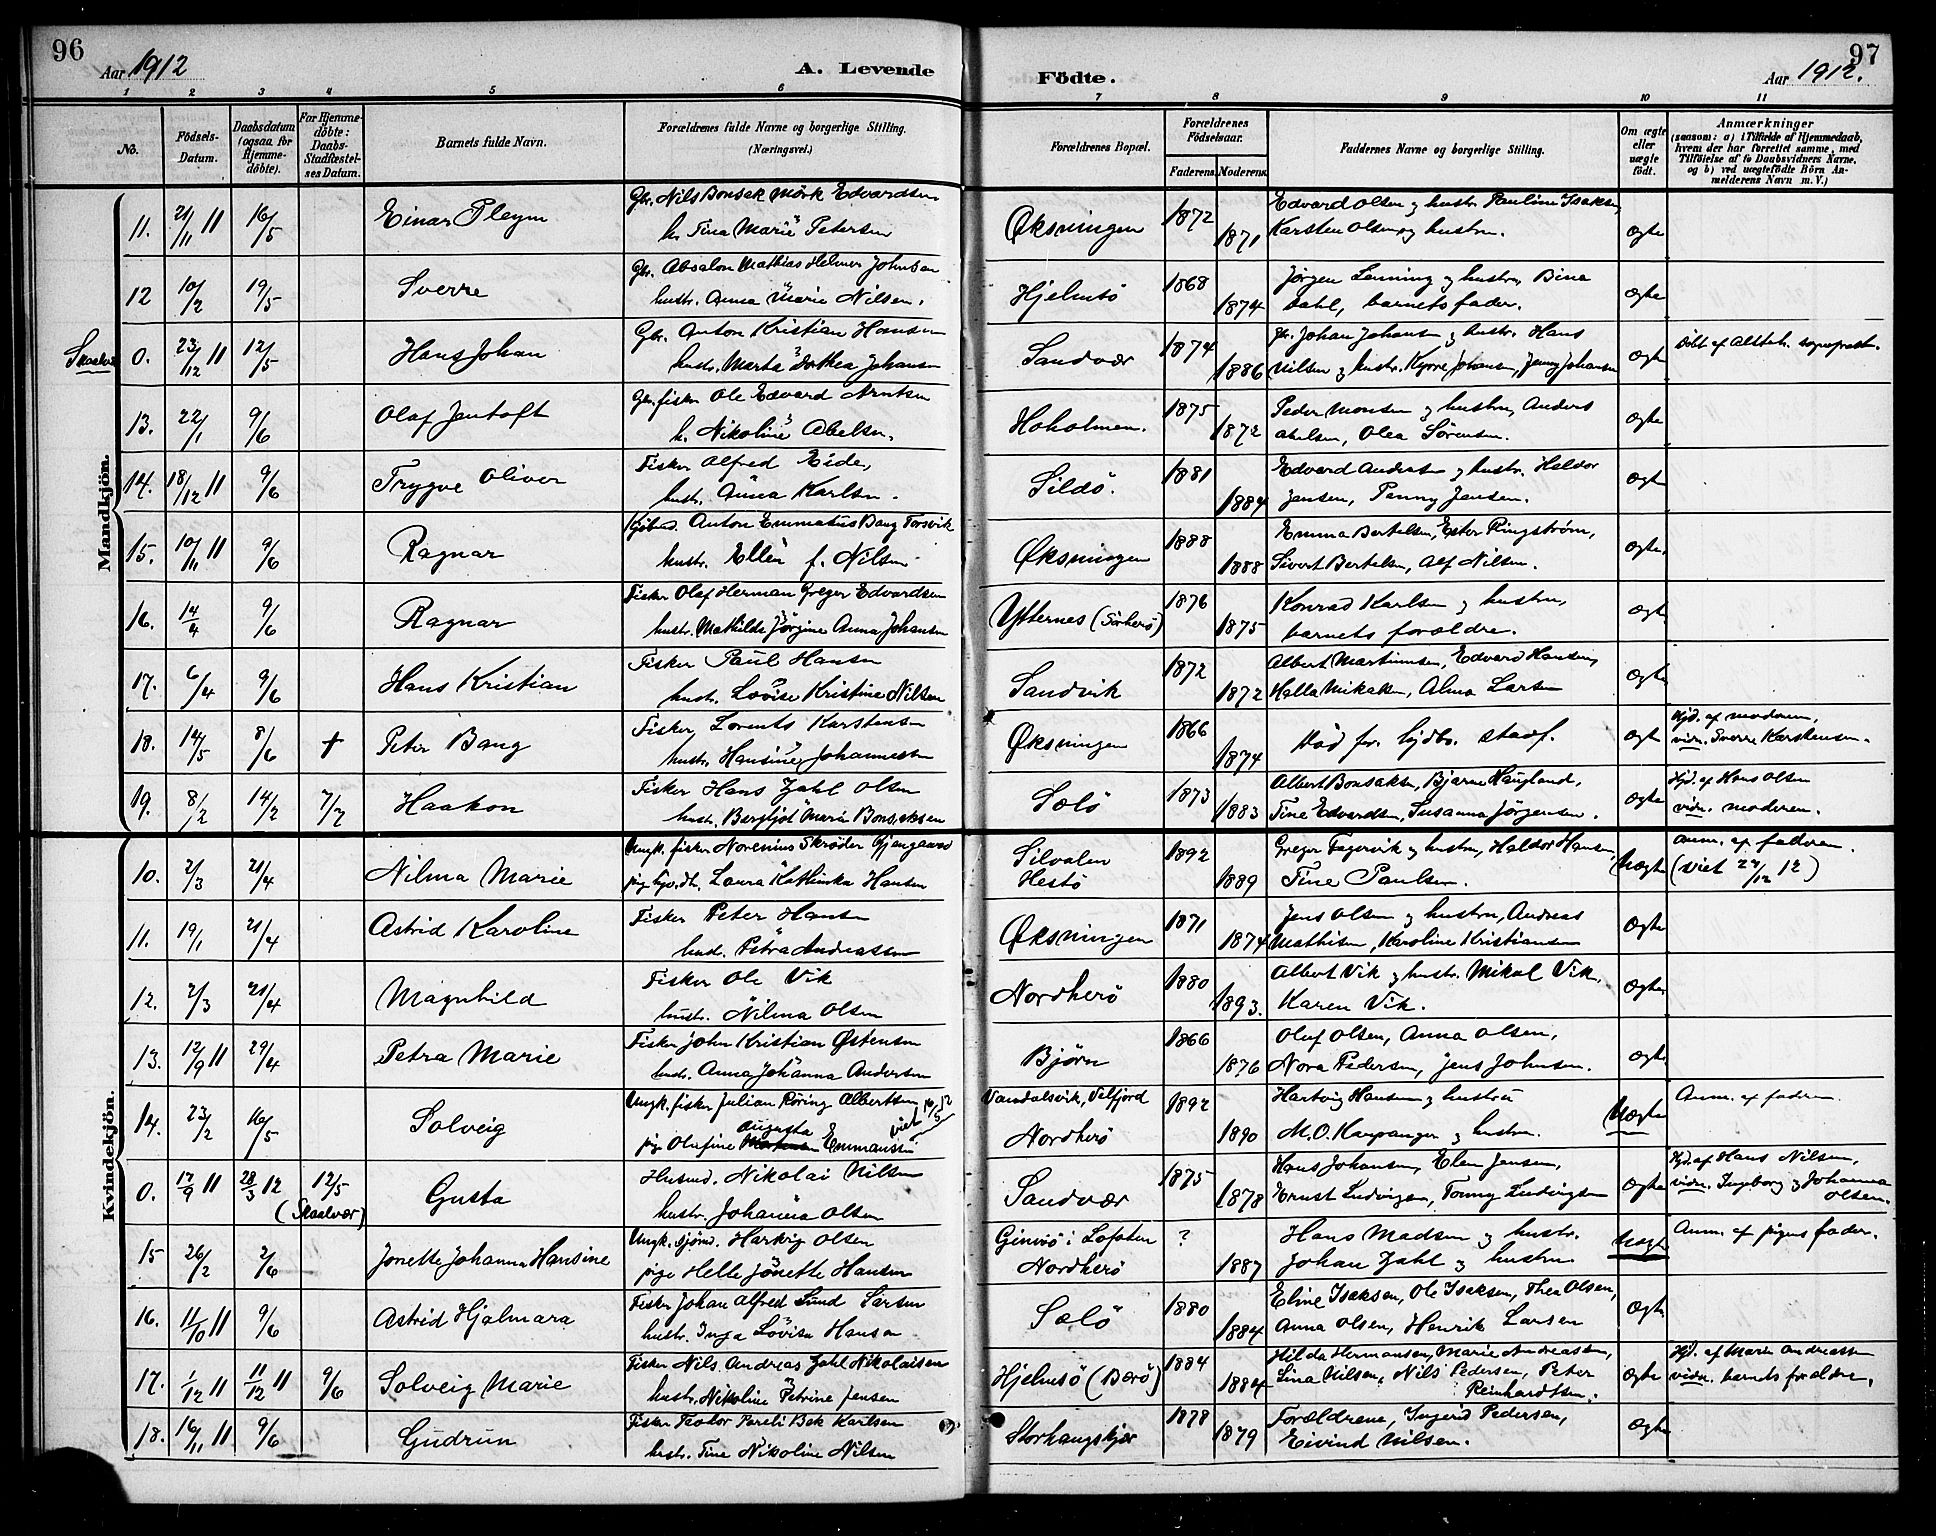 96
Aar 1912
A. Levende
Födte.
Aar 1912.
97
1 2 3 4 5 6 7 8 9 10 11
No.
Födsels-Datum.
Daabsdatum (ogsaa for Hjemme-döbte).
For Hjemme-döbte: Daabs-Stadfæstel-ses Datum.
Barnets fulde Navn.
Forældrenes fulde Navne og borgerlige Stilling.
(Næringsvei.)
Forældrenes Bopæl.
Forældrenes Födselsaar.
Faderens. Moderens.
Faddernes Navne og borgerlige Stilling.
Om ægte eller uægte födt.
Anmærkninger
(saasom: a) i Tilfælde af Hjemmedaab, hvem der har forrettet samme, med Tilföielse af to Daabsvidners Navne, og b) ved uægtefödte Börn Anmelderens Navn m. V.)
Mandkjön.
11. 21/11 11 16/5 Einar Pleym Gbr. Nils Bonsak Mörk Edvardsen Øksningen 1872 Edvard Olsen og hustr. Pauline Isaksen,
h. Tina Marie Petersen 1871 Karsten Olsen og hustru. Ægte
12 10/2 19/5 Sverre Gbr. Absalon Mathias Helmer Johnsen Hjelmsö 1868 Jørgen Lenning og hustr. Bina
hustr. Anna Marie Nilsen. 1874 Dahl, barnets fader. Ægte
0. 23/12 11 12/5 Hans Johan Gbr. Anton Kristian Hansen Sandvær 1874 Gbr. Johan Johansen og hustr. Hans Döbt af Alstah. sogneprest.
hustr. Marta Dorthea Johansen 1886 Nilsen og hustr. Kyrre Johansen, Jenny Johansen Ægte
13. 22/1 9/6 Olaf Jentoft Gbr. fisker Ole Edvard Arntsen Hoholmen. 1875 Peder Monsen og hustru, Anders
h. Nikoline Abelsen. 1872 Abelsen, Olea Sørensen. Ægte
14. 18/12 11 9/6 Trygve Oliver Fisker Alfred Eide, Sildö. 1881 Edvard Andreassen og hustr. Haldor
hustr. Anna Karlsen. 1884 Jensen, Penny Jensen. Ægte
15. 10/11 11 9/6 Ragnar Anton Emmatus Bang Torsvik Øksningen 1888 Emma Bertelsen, Ester Ringstrøm,
hustr. Ellen f. Nilsen 1888 Sivert Bertelsen, Alf Nilsen. Ægte
16. 14/4 9/6 Ragnar Fisker Olaf Herman Greger Edvardsen Ytternes (Sörherö) 1876 Konrad Karlsen og hustru,
hustr. Mathilde Jörgine Anna Johansen 1875 barnets forældre. Ægte
17. 6/4 9/6 Hans Kristian Fisker Paul Hansen Sandvik 1872 Albert Martinusen, Edvard Hansen,
hustr. Lovise Kristine Nilsen 1872 Halla Mikalsen, Alma Larsen Ægte
18. 14/5 8/6 + Peter Bang Fisker Lorents Karstensen Øksningen 1866 Död før hjdb. stadf. Hjd. af moderen,
hustr. Hansine Johannessen 1874 Ægte vidn. Sverre Karstensen.
19. 8/2 14/2 7/7 Haakon Fisker Hans Zahl Olsen Solö 1873 Albert Bonsaksen, Bjarne Haugland, Hjd. af Hans Olsen
hustr. Bergljot Marie Bonsaksen 1883 Tine Edvardsen, Susanna Jörgensen. Ægte vidn. moderen.
Kvindekjön.
10. 2/3 21/4 Nilma Marie Ungk. fisker Norenius Skrøder Silvalen 1892 Greger Fagervik og hustru, Haldor Hansen, Anm. af faderen.
Laura Kathinka Hansen Hestö 1889 Tine Paulsen. Uægte (viet 27/12 12)
11. 19/1 21/4 Astrid Karoline Fisker Peter Hansen Øksningen 1871 Jens Olsen og hustru, Andreas
hustr. Petra Andreassen 1874 Mathisen, Karoline Kristiansen Ægte
12. 2/3 21/4 Magnhild Fisker Ole Vik Nordherö 1880 Albert Vik og hustr. Mikal Vik,
hustr. Nilma Olsen 1893. Karen Vik. Ægte
13. 12/9 11 29/4 Petra Marie Fisker John Kristian Østensen Bjørn 1866 Oluf Olsen, Anna Olsen,
hustr. Anna Johanna Andersen 1876 Nora Pedersen, Jens Johnsen. Ægte
14. 23/2 16/5 Solveig Ungk. fisker Julian Röring Albertsen viet Vandalsvik, Velfjord 1892 Hartvig Hansen og hustru Anm. af faderen.
pige Olufine Augusta Emmanssen Nordherö 1890 M. O. Karpanger og hustru. Uægte
0. 17/9 11 28/3 12 12/5 (Skaalvær) Gusta Husmd. Nikolai Nilsen Sandvær 1875 Hans Johansen, Elen Jensen, Hjd. af Hans Nilsen,
hustr. Johanna Olsen 1878 Ernst Ludvigsen, Tommy Ludvigsen Ægte vidn. Ingeborg og Johanna Olsen.
15 26/2 2/6 Jonette Johanna Hansine Ungk. sjömd. Hartvig Olsen Gimsö i Lofoten ? Hans Madsen og hustr. Anm. af pigens fader.
pige Helle Jönette Hansen Nordherö 1887 Johan Zahl og hustru Uægte
16. 11/10 11 9/6 Astrid Hjalmara Fisker Johan Alfred Lund Larsen Solö 1880 Eline Isaksen, Ole Isaksen, Thea Olsen,
hustr. Inga Lovise Hansen 1884 Anna Olsen, Henrik Larsen Ægte
17. 1/12 11 11/12 11 9/6 Solveig Marie Fisker Nils Andreas Zahl Nikolaisen Hjelmsö (Berö) 1884 Hilda Hermansen, Marie Andreassen, Hjd. af Maren Andreassen
hustr. Nikoline Petrine Jensen 1884 Lina Nilsen, Nils Pedersen, Peter Reinhardtsen. Ægte vidn. barnets forældre.
18. 16/11 11 9/6 Gudrun Fisker Pareli Bek Karlsen Storhaugskjer 1878 Forældrene, Ingerid Pedersen,
hustr. Tine Nikoline Nilsen 1879 Eivind Nilsen. Ægte